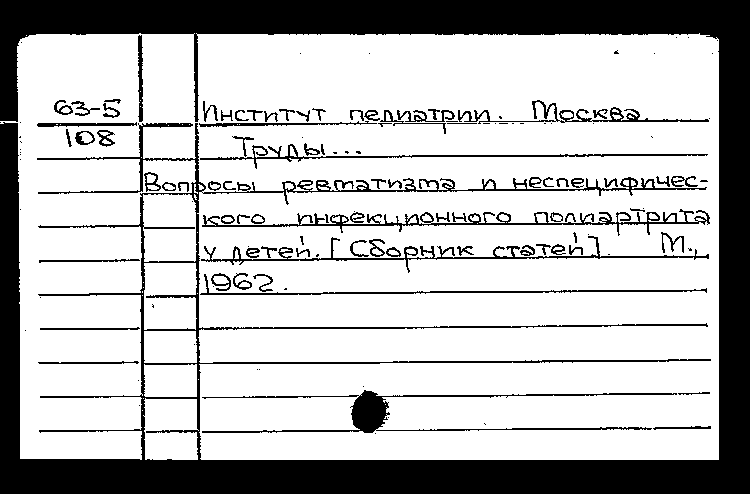 63-5 Институт педиатрии. Москва.
108 Труды...
Вопросы ревматизма и неспецифичес-
кого инфекционного полиартрита
у детей. [Сборник статей]. М.,
1962.